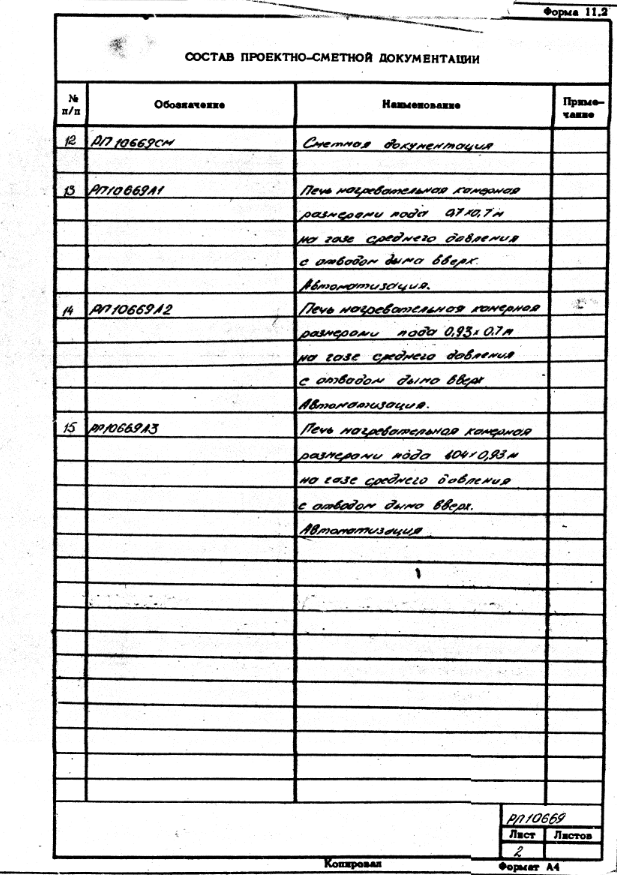 Форма 11.2
СОСТАВ ПРОЕКТНО-СМЕТНОЙ ДОКУМЕНТАЦИИ
№ п/п Обозначение Наименование Приме-чание
12 РП10669СМ Сметная документация
13 РП10669А1 Печь нагревательная камерная
размерами пода 0,7×0,7м
на газе среднего давления
с отводом дыма вверх.
Автоматизация.
14 РП10669А2 Печь нагревательная камерная
размерами пода 0,93×0,7м
на газе среднего давления
с отводом дыма вверх
Автоматизация.
15 РП10669А3 Печь нагревательная камерная
размерами пода 1,04×0,93м
на газе среднего давления
с отводом дыма вверх.
Автоматизация
РП10669
Лист Листов
2
Копировал Формат А4